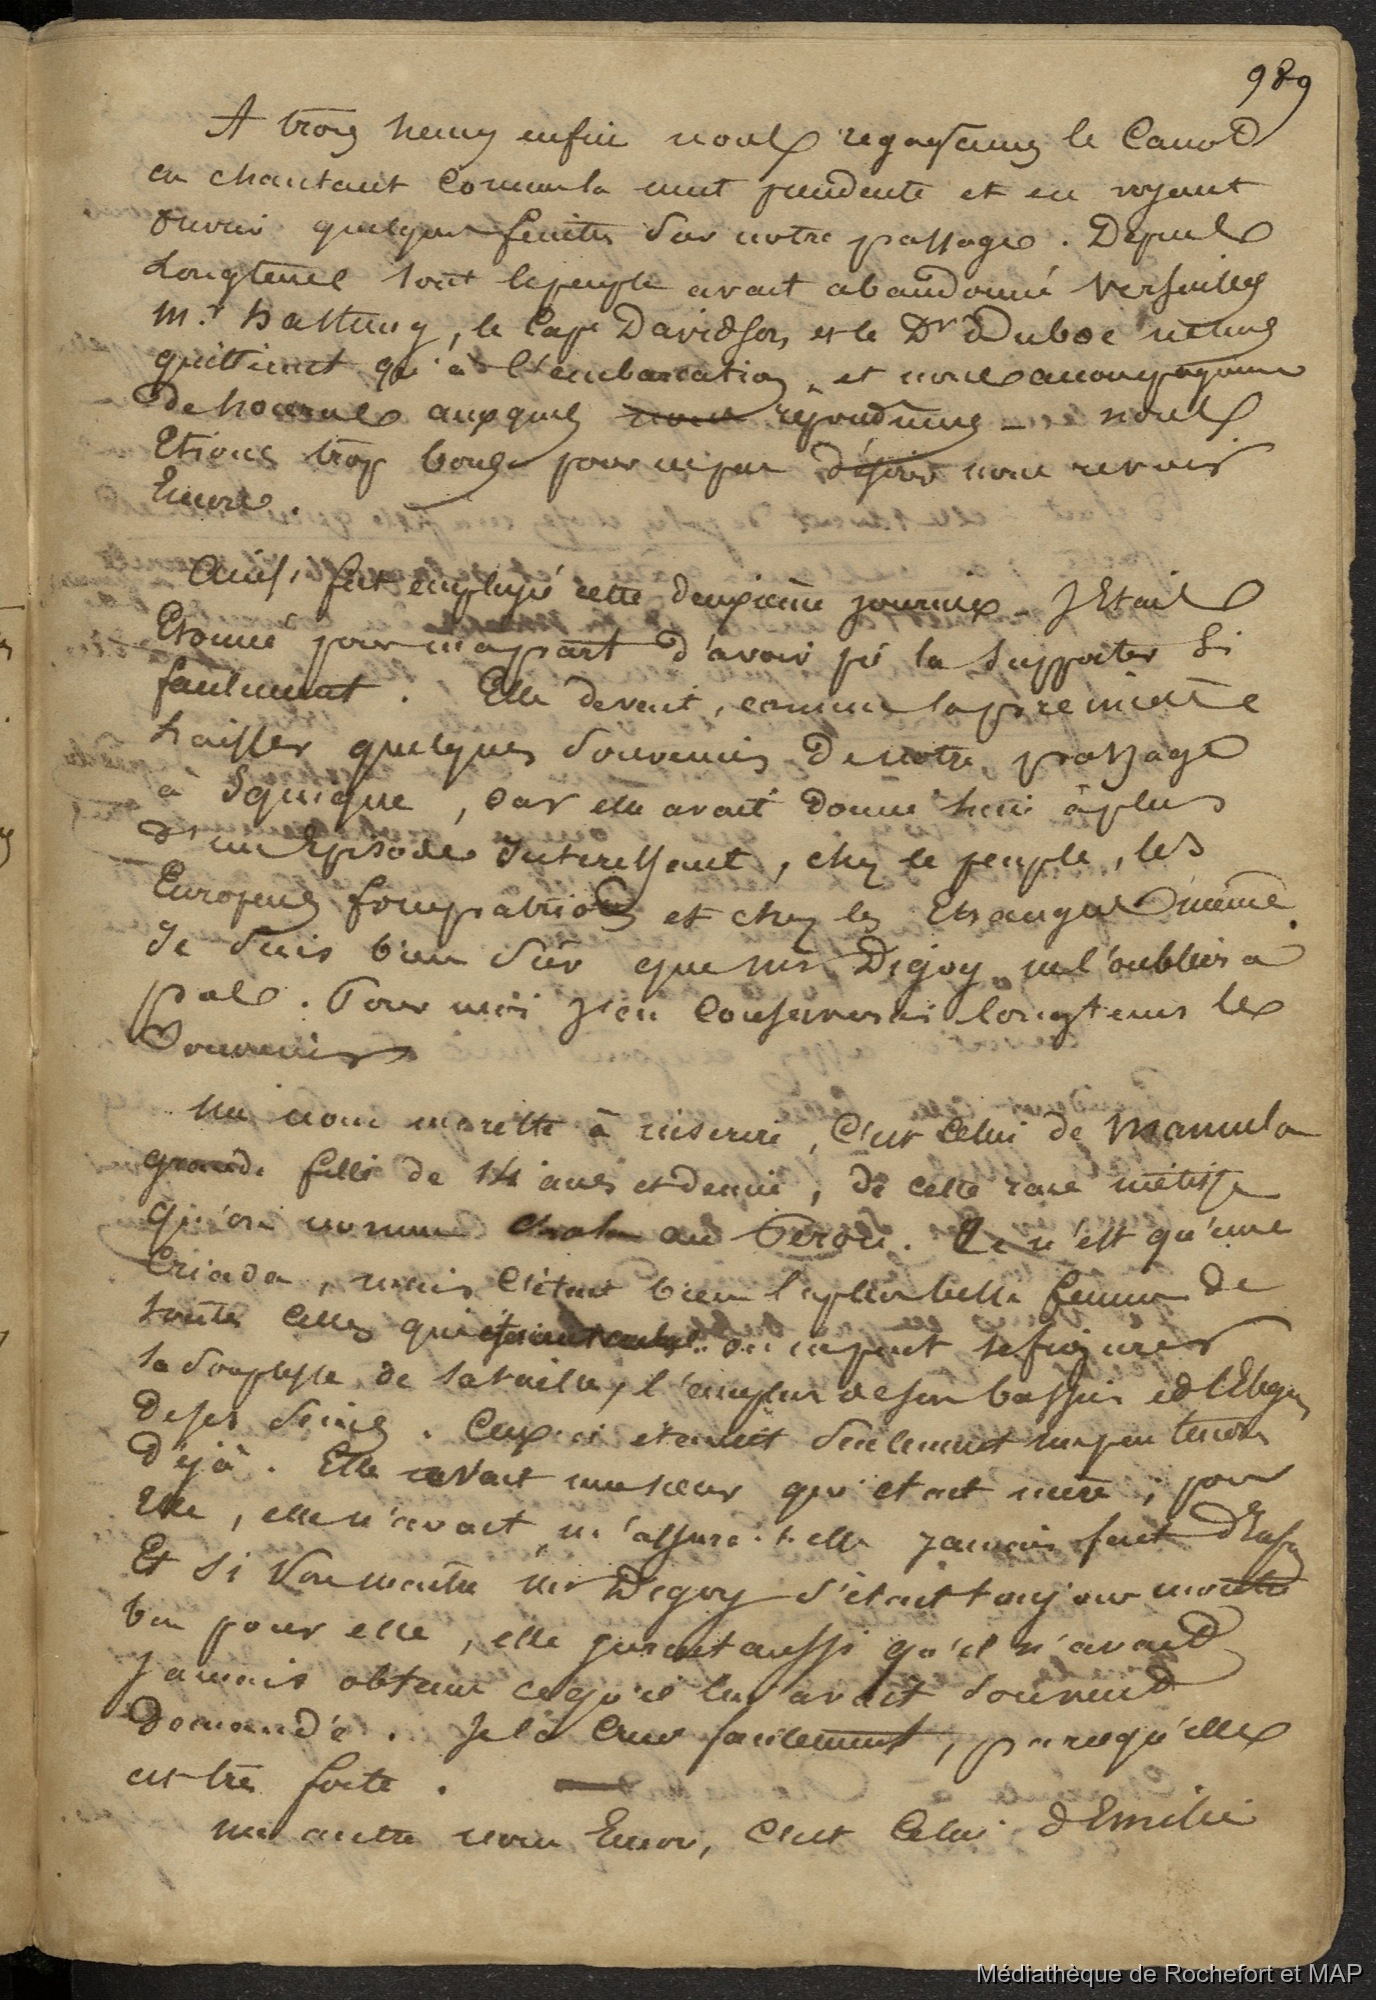 989
A trois heures enfin nous regagnames le Canot
en chantant comme la nuit precedente et en voyant
ouvrir quelques fenêtres sur notre passage. Depuis
Longtems tout le peuple avait abandonné Versailles
Mr. hattung, le Cape Davidson, et le Dr Duboc ne nous
quittèrent qu'à l'embarcation, et nous accompagnèrent
de houras auxquels repondimes _ nous
Etions trop bons pour ne pas désirer nous revoir
Encore.
Ainsi fut employé cette deuxième journée _ J'Etais
Etonné pour ma part d'avoir pû la supporter si
facilement. Elle devait, comme la première
laisser quelques souvenirs de notre passage
à Iquique, car elle avait donné lieu à plus
d'un Episode interessant, chez le peuple, les
Européens compatriotes et chez les Etrangers même.
Je suis bien sûr que Mr Digoy ne l'oubliera
pas. Pour moi j'en conserverai longtems le
Souvenir
Un nom me reste à inscrire, C'est Celui de Manuela
grande fille de 14 ans et demie, de cette race métisse
qu'on nomme Chola au Perou. Ce n'est qu'une
Criada, mais C'était bien la plus belle femme de
toutes celles qui on ne peut se figurer
la souplesse de sa taille, l'ampleur de son bassin et l'Elegce
de ses seins. Ceux ci etaient seulement un peu tendres
Déjà. Elle avait une soeur qui etait mère; pour
Elle, elle n'avait, m'assura-t-elle jamais fait d'Enfs
Et si son maitre Mr Digoy s'était toujours montré
bon pour elle, elle jurait aussi qu'il n'avait
Jamais obtenu ce qu'il lui avait souvent
Demandé. Je la Crus facilement, parcequ'elle
est très forte.
Un autre nom Encor, C'est Celui d'Emilie
Médiathèque de Rochefort et MAP